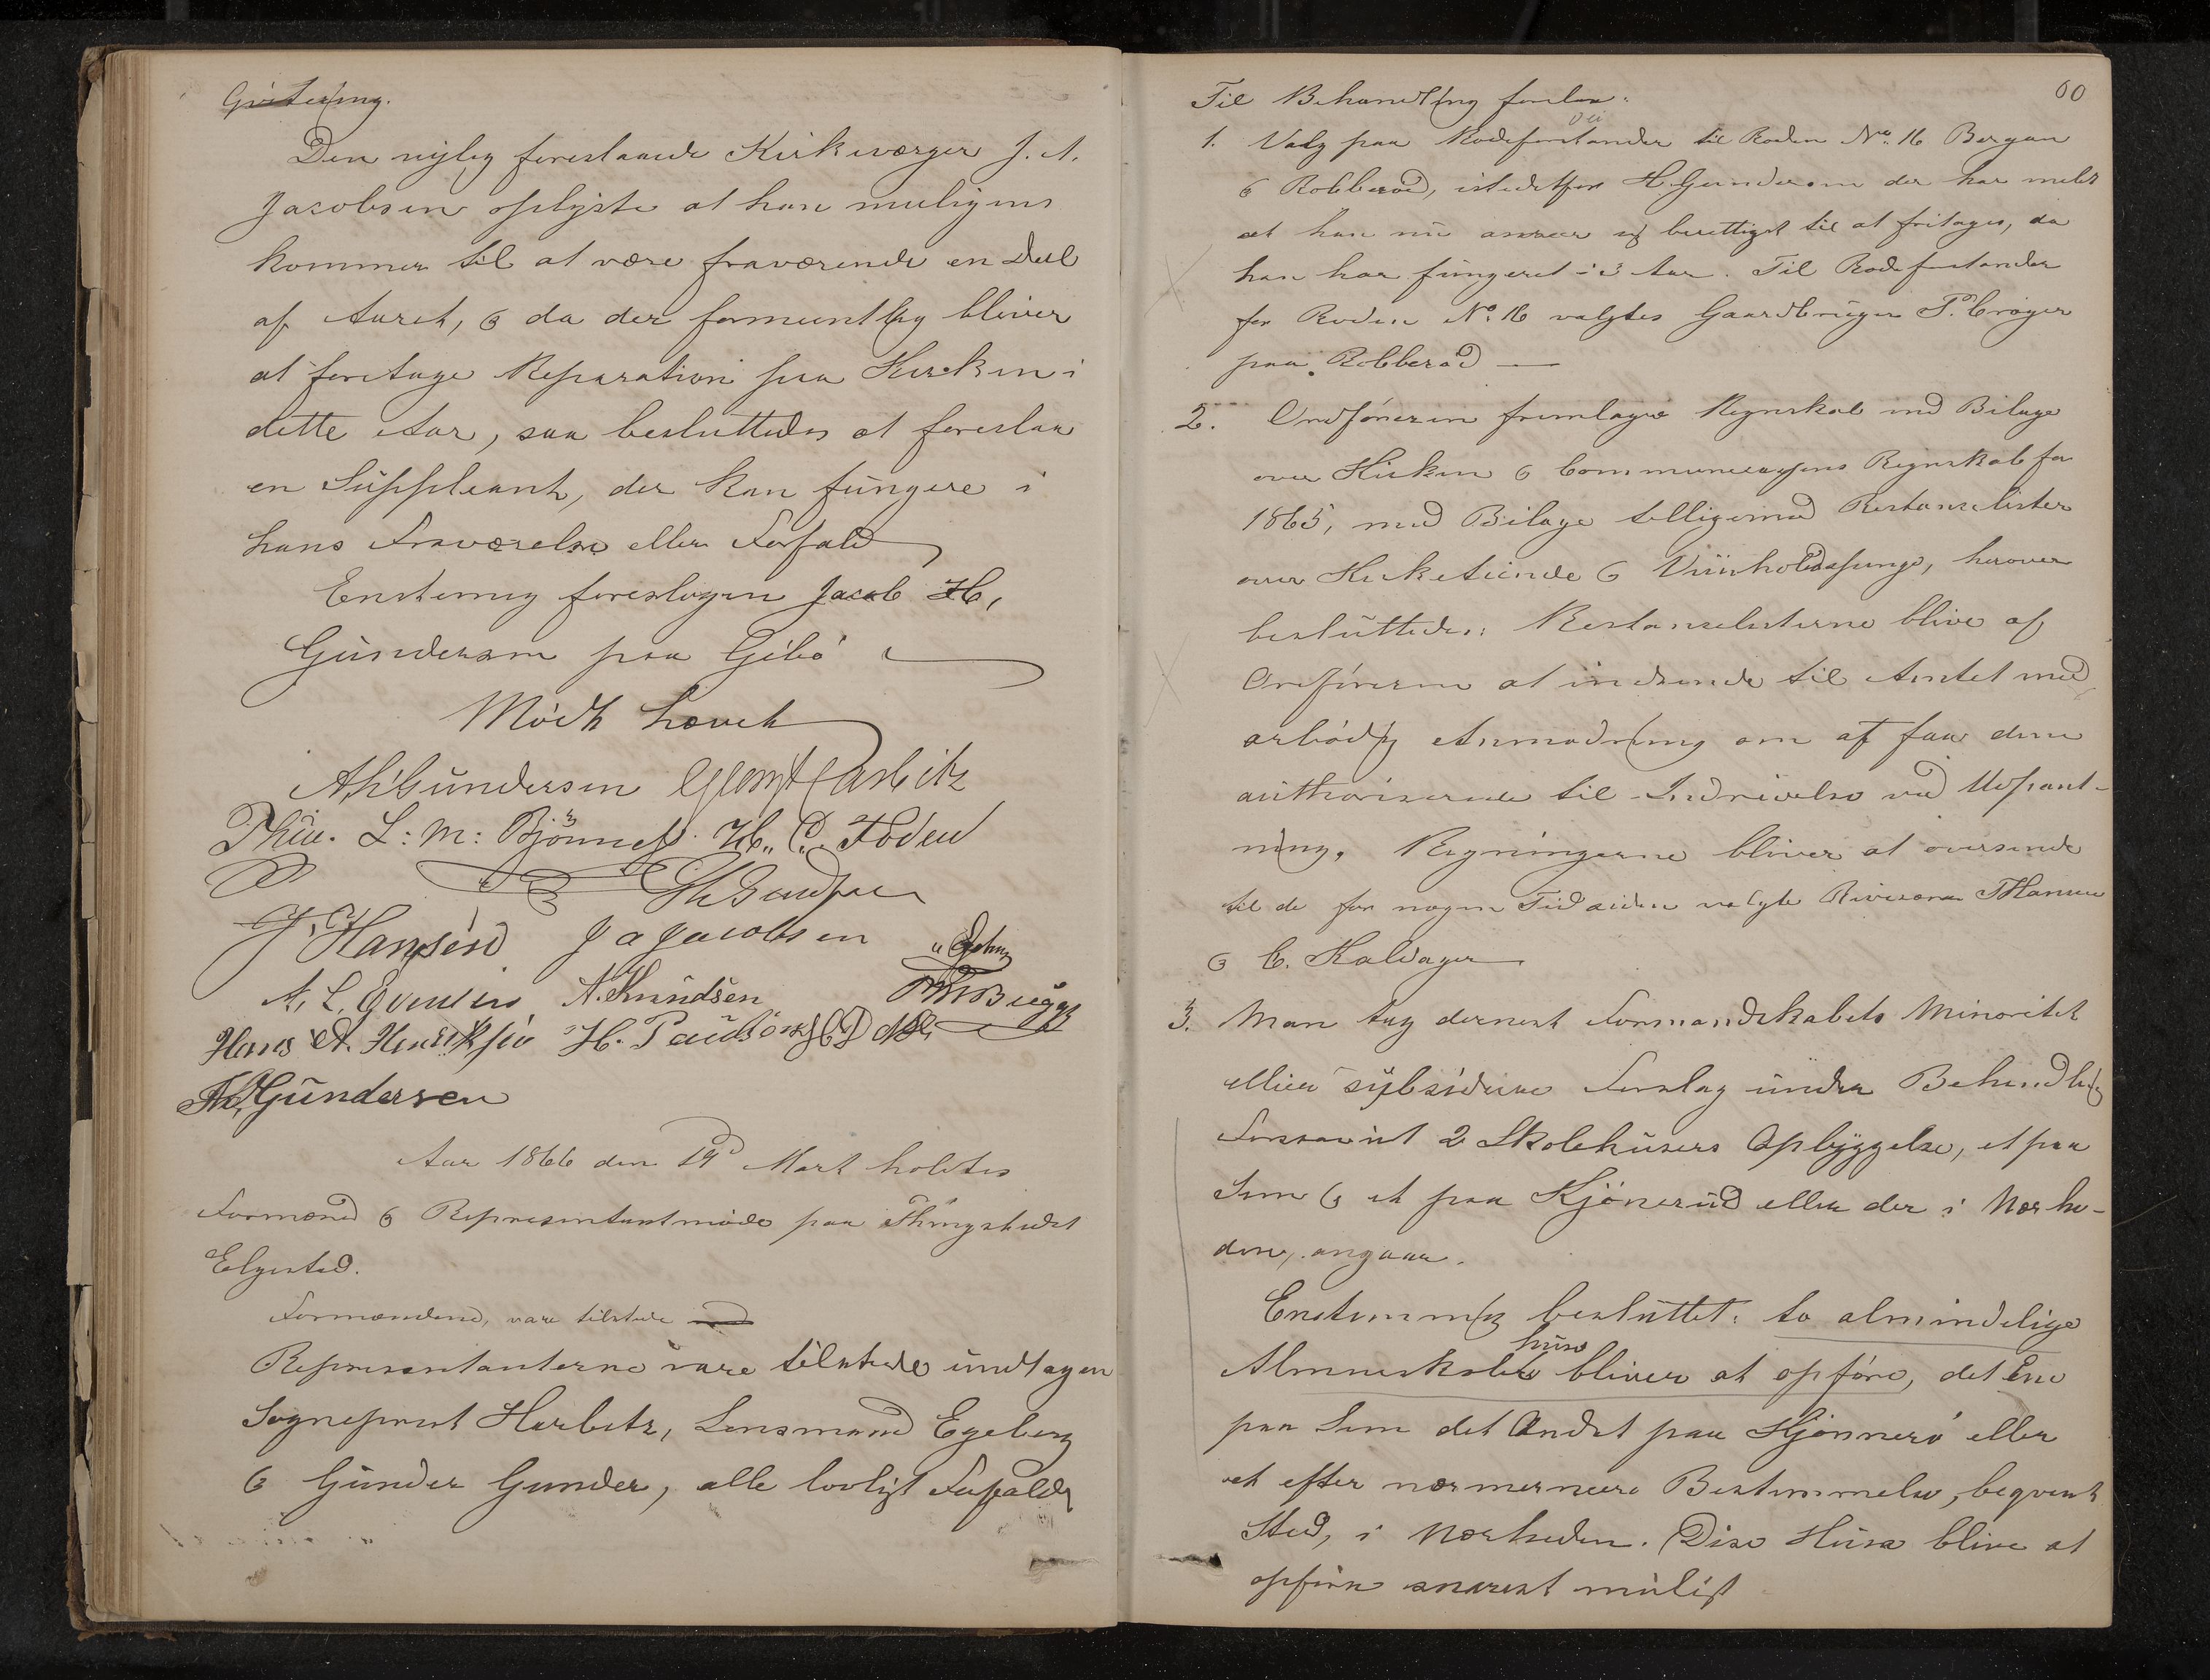 Den nylig foreslaaede Kirkeværger J. A.
Jacobsen oplyste at han muligens
kommer til at være fraværende en Deel
af Aaret, & da der formeentlig bliver
at foretage Reparation paa Kirken i
dette Aar, saa besluttedes at foreslaa
en Suppleant, der kan fungere i
hans Fraværelse eller Forfald
Enstemig foreslagen Jacob H.
Gundersen paa Gibø
Mødet hævet
A. H. Gundersen Harbitz
L: M: Bjønnes. H. C. Foden
J. Hansen J A Jacobsen
A. L. Evensen A. Knudsen Bugge
Hans A. Henriksen H. Paulsen
Gundersen
Aar 1866 den 19d Mart holdtes
Formænd & Representantmøde paa Thingstedet
Elgestad.
Formændene, vare tilstede
Representanterne vare tilstede undtagen
Sogneprest Harbitz, Lensmand Egeberg
& Gunder Gunder, alle lovligt Forfald
60
Til Behandling forelaa:
1. Valg paa Rodeforstander til Roden No. 16 Bergan
& Robberød, istedetfor H Gundersen der har meldt
at han nu ansaae sig berettiget til at fritages, da
han har fungeret i 3 Aar. Til Rodeforstander
for Roden No. 16 valgtes Gaardbruger P. Crøger
paa Robberød
2. Ordføreren fremlagde Regnskab med Bilage
over Kirken & Communecassens Regnskab for
1865, med Bilage tilligemed Restanselister
over Kirketiende & Viinholdspenge, herover
besluttedes: Restanselisterne blive af
Ordføreren at indsende til Amtet med
ærbødig Anmodning om at faa dem
authoriserede til Inddrivelse ved Udpant-
ning. Regningerne bliver at oversende
til de for nogen Tid siden valgte Revisorer T Hansen
& C. Kaldager
3. Man tog dernest Formandskabets Minoritet
ellier subsidiere Forslag under Behandling
Forsaavidt 2 Skolehusers Opbyggelse, et paa
Sem & et paa Kjønerud eller der i Nærhe-
den, angaar.
Enstemmig besluttet: to almindelige
huse
Almueskole bliver at opføre, det Ene
paa Sem det Andet paa Kjønnerø eller
et efter nærmere Bestemmelse, beqvemt
Sted, i Nærheden. Disse Huse blive at
opføre snarest muligt